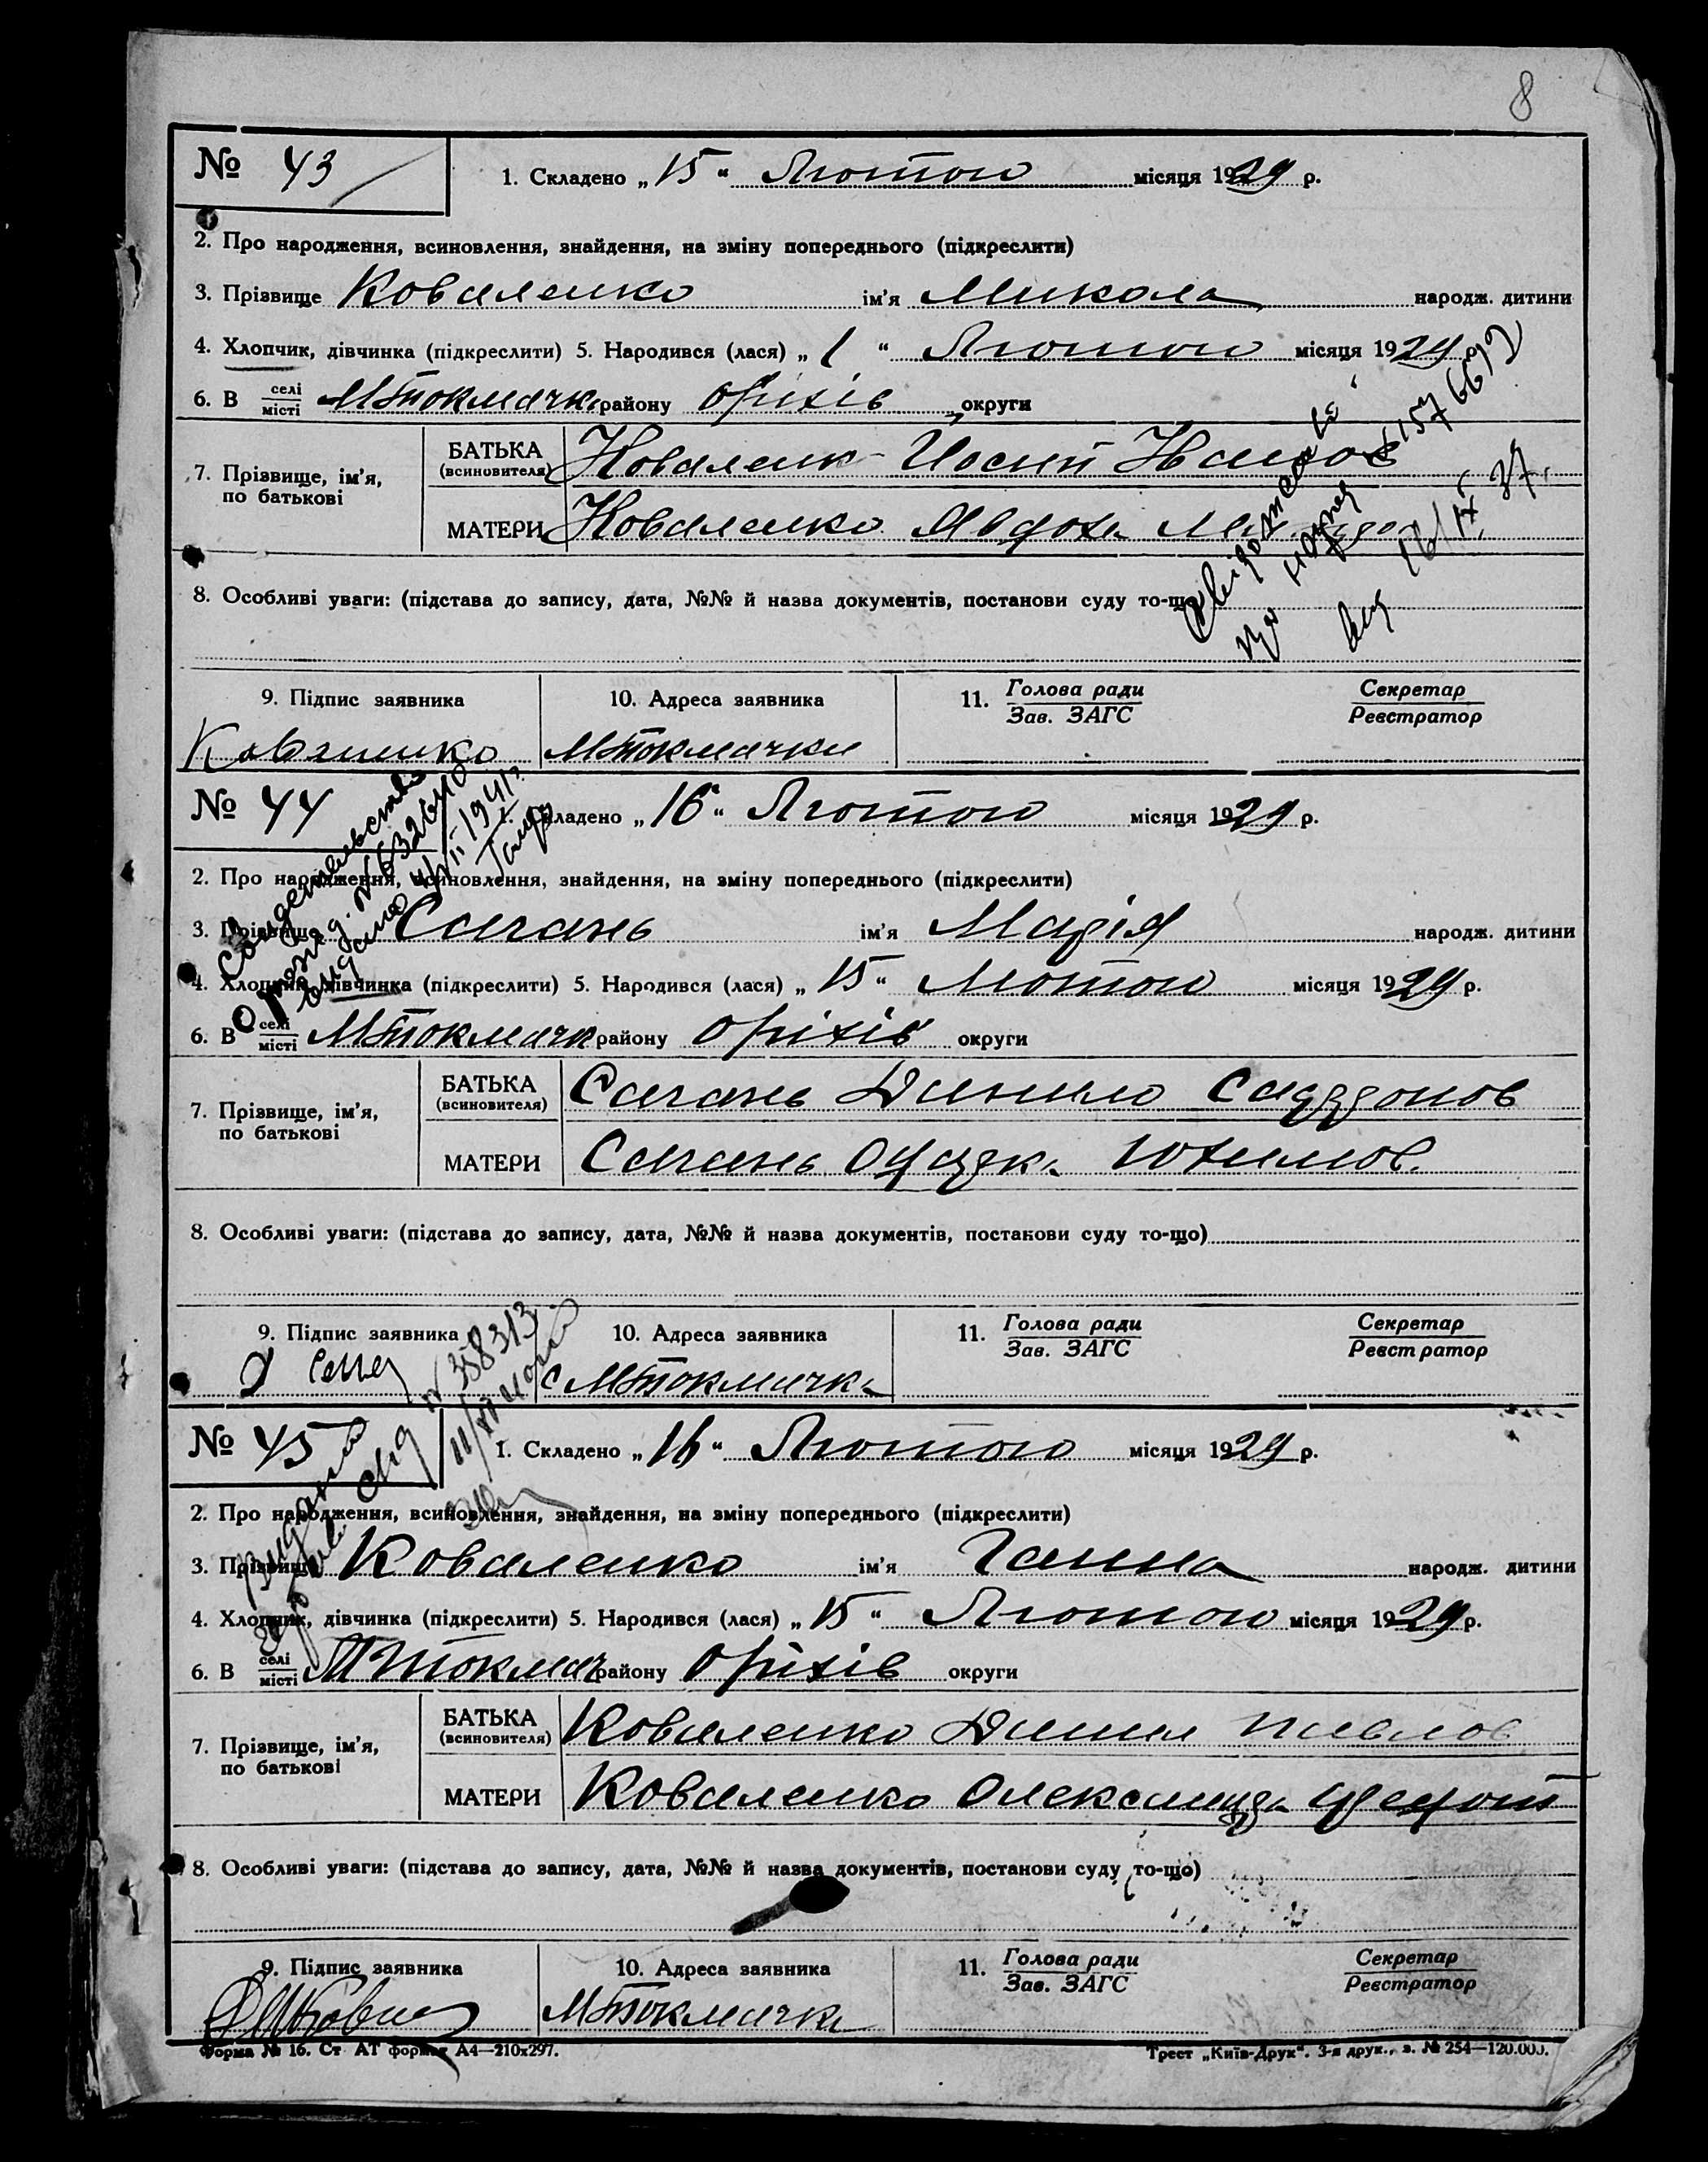 8
№ 43
1. Складено „15“ Лютого місяця 1929 р.
2. Про народження, всиновлення, знайдення, на зміну попереднього (підкреслити)
3. Прізвище Коваленко ім'я Микола народж. дитини
4. Хлопчик, дівчинка (підкреслити) 5. Народився (лася) „1“ Лютого місяця 1929 р.
6. В селі місті МТокмачк району Оріхів округи
7. Прізвище, ім'я, по батькові
БАТЬКА (всиновителя) Коваленк Йосип Іванов
МАТЕРИ Коваленко Явдоха
8. Особливі уваги: (підстава до запису, дата, №№ й назва документів, постанови суду то-що)
9. Підпис заявника
10. Адреса заявника
11. Голова ради Зав. ЗАГС
Секретар Реєстратор
МТокмачки
№ 44
1. Складено „16“ Лютого місяця 1929 р.
Свидетельство
2. Про народження, всиновлення, знайдення, на зміну попереднього (підкреслити)
3. Прізвище Сагань ім'я Марія народж. дитини
4. Хлопчик, дівчинка (підкреслити) 5. Народився (лася) „15“ Лютого місяця 1929 р.
6. В селі місті МТокмачк району Оріхів округи
7. Прізвище, ім'я, по батькові
БАТЬКА (всиновителя) Сагань Данило
МАТЕРИ Сагань Юхимов.
8. Особливі уваги: (підстава до запису, дата, №№ й назва документів, постанови суду то-що)
9. Підпис заявника
10. Адреса заявника
11. Голова ради Зав. ЗАГС
Секретар Реєстратор
с МТокмачка
№ 358313
№ 45
1. Складено „16“ Лютого місяця 1929 р.
2. Про народження, всиновлення, знайдення, на зміну попереднього (підкреслити)
3. Прізвище Коваленко ім'я Ганна народж. дитини
4. Хлопчик, дівчинка (підкреслити) 5. Народився (лася) „15“ Лютого місяця 1929 р.
6. В селі місті МТокмач району Оріхів округи
7. Прізвище, ім'я, по батькові
БАТЬКА (всиновителя) Коваленко Данил Павлов
МАТЕРИ Коваленко Олександра
8. Особливі уваги: (підстава до запису, дата, №№ й назва документів, постанови суду то-що)
9. Підпис заявника
10. Адреса заявника
11. Голова ради Зав. ЗАГС
Секретар Реєстратор
МТокмачка
Форма № 16. Ст АТ формат А4—210х297.
Трест „Київ-Друк“. 3-я друк., з. № 254—120.000.